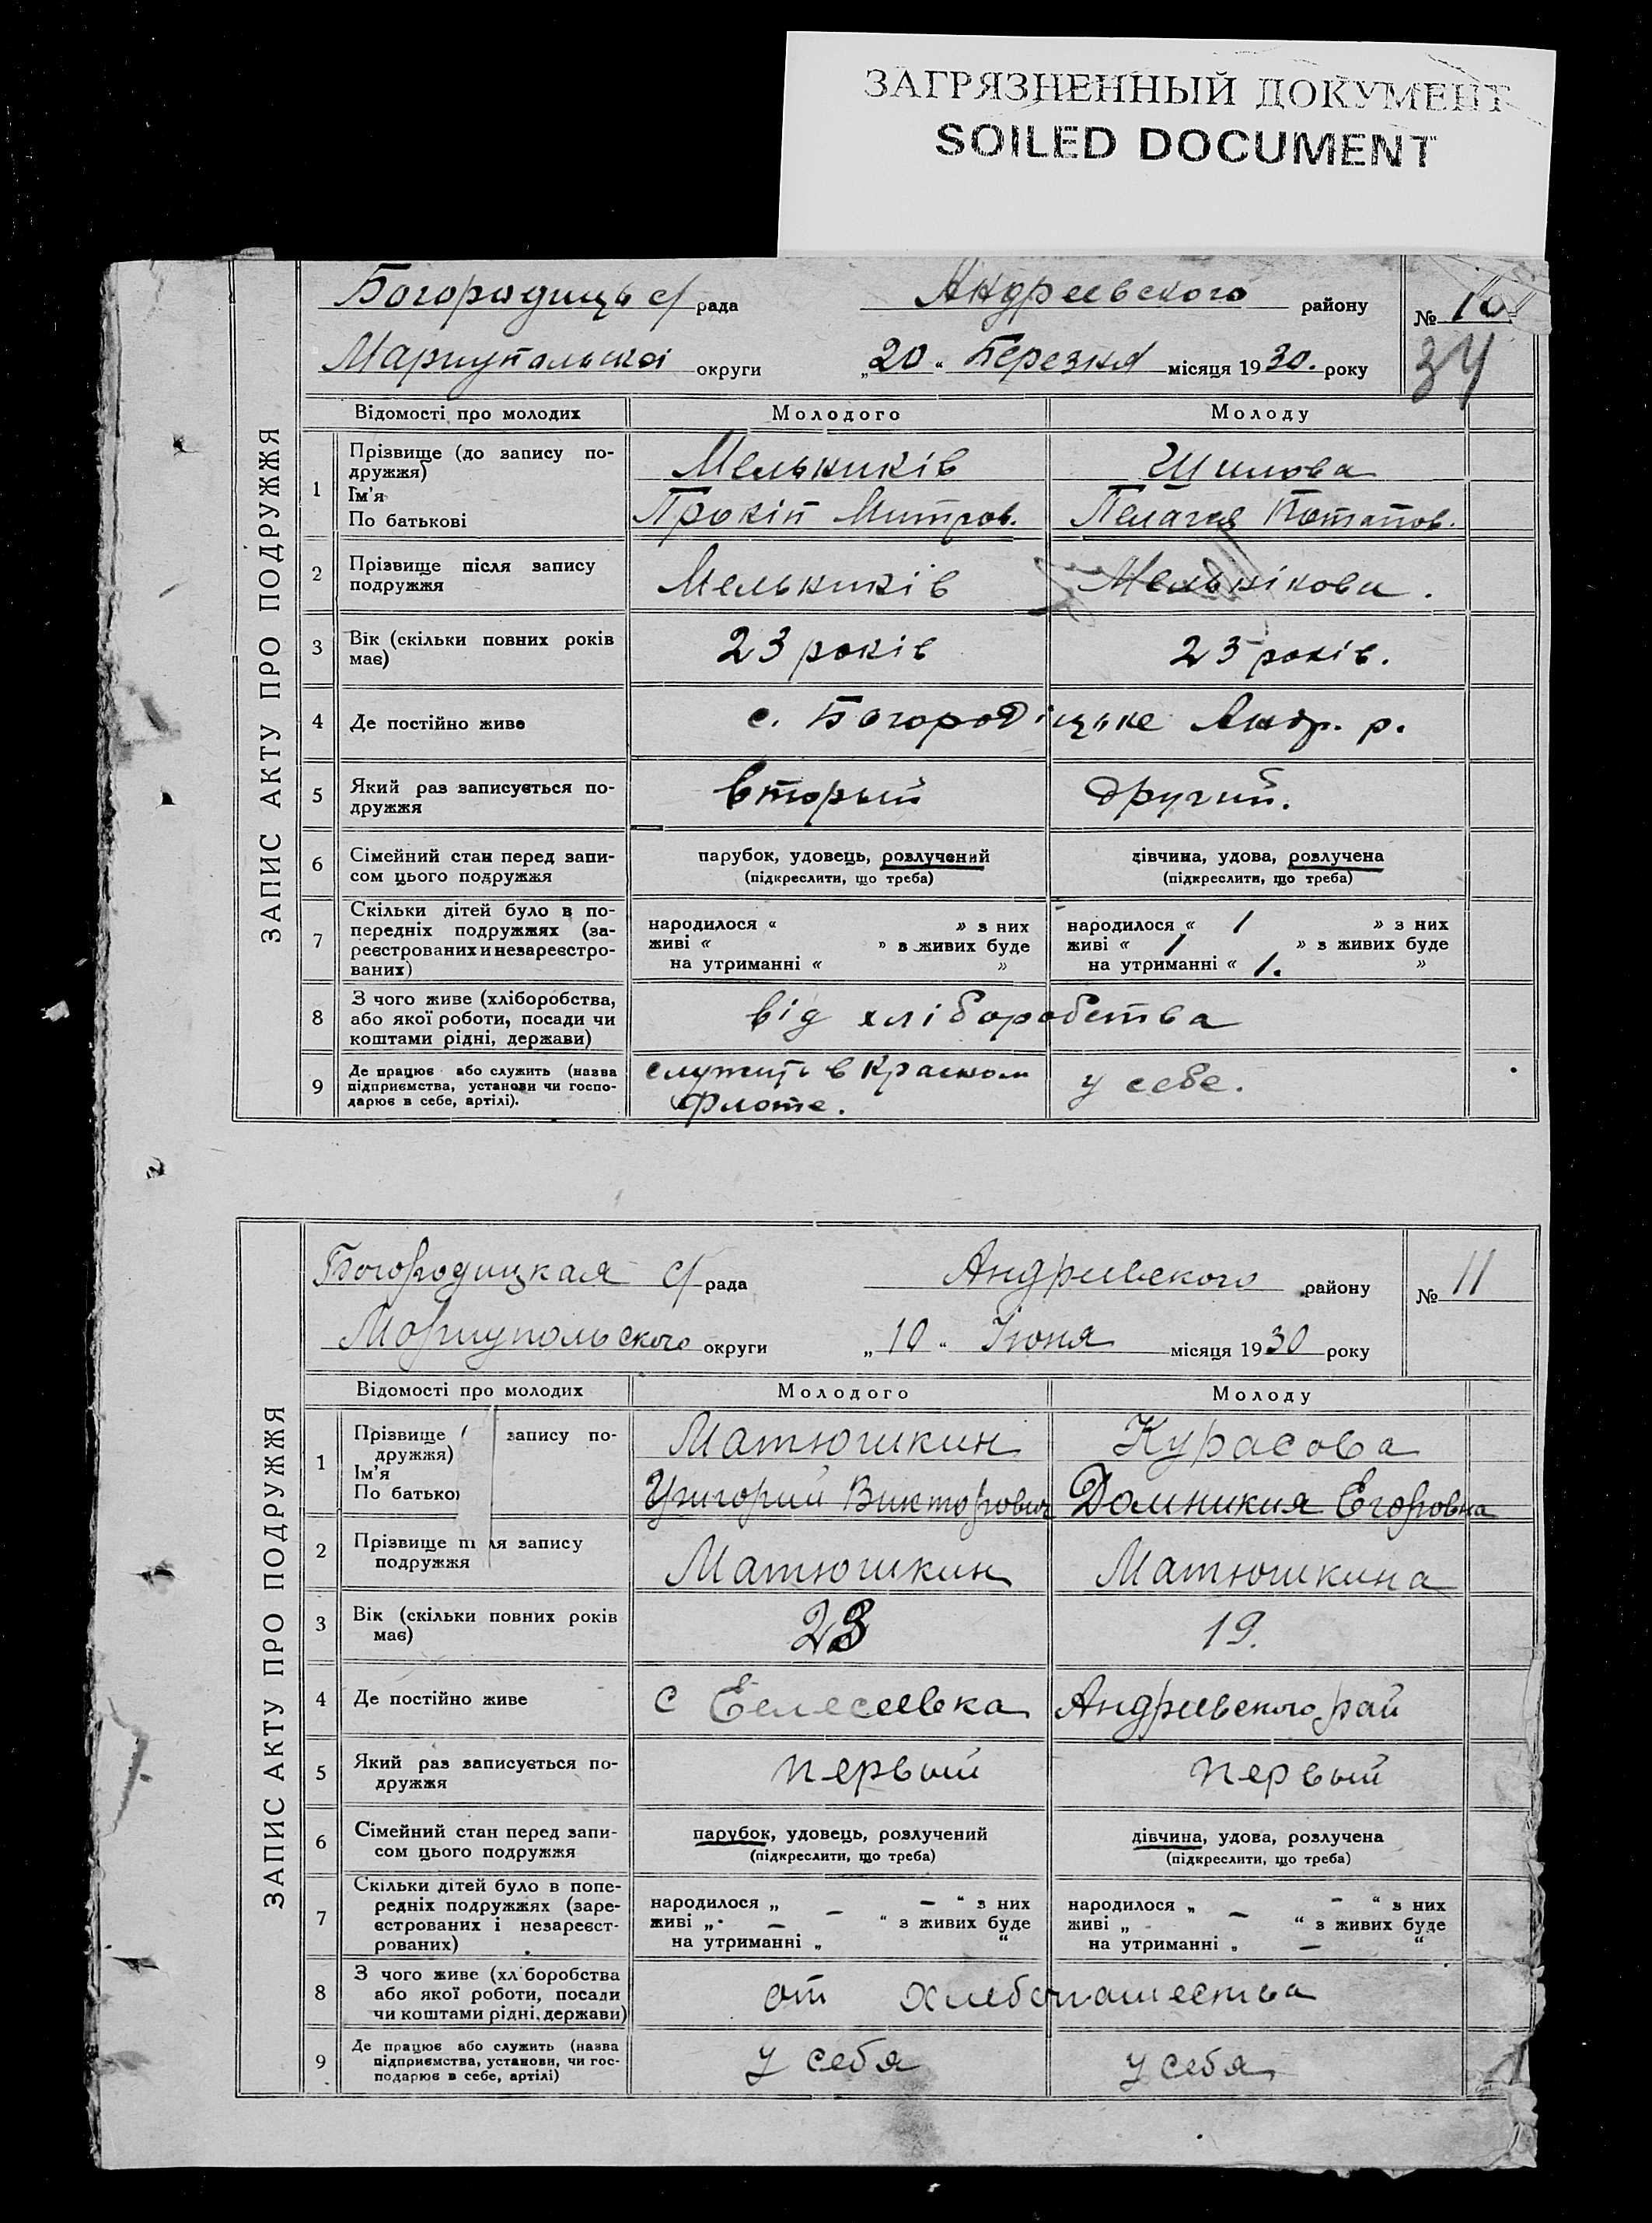 ЗАГРЯЗНЕННЫЙ ДОКУМЕНТ
SOILED DOCUMENT
ЗАПИС АКТУ ПРО ПОДРУЖЖЯ
Богородиць с/ рада Андреевского району № 10
Мариупольської округи „20“ Березня місяця 1930. року 34
Відомості про молодих Молодого Молоду
1 Прізвище (до запису по-
дружжя) Мельників Шилова
Ім'я
По батькові Прокіп Митров. Пелагея Потапов.
2 Прізвище після запису
подружжя Мельників Мельнікова.
3 Вік (скільки повних років
має) 23 років 23 років.
4 Де постійно живе с. Богородіцьке Андр. р.
5 Який раз записується по-
дружжя вторый другий.
6 Сімейний стан перед запи-
сом цього подружжя
парубок, удовець, розлучений дівчина, удова, розлучена
(підкреслити, що треба) (підкреслити, що треба)
7 Скільки дітей було в по-
передніх подружжях (за-
реєстрованих и незареєстро-
ваних)
народилося « » з них народилося « 1 » з них
живі « » в живих буде живі « 1 » з живих буде
на утриманні « » на утриманні « 1. »
8 З чого живе (хліборобства,
або якої роботи, посади чи
коштами рідні, держави) від хліборобства
9 Де працює або служить (назва
підприємства, установи чи госпо-
дарює в себе, артілі).
служить в Красном у себе.
флоте.
ЗАПИС АКТУ ПРО ПОДРУЖЖЯ
Богородицкая с/ рада Андреевского району № 11
Мориупольского округи „10“ Июня місяця 1930 року
Відомості про молодих Молодого Молоду
1 Прізвище ( запису по-
дружжя) Матюшкин Курасова
Ім'я
По батько Григорий Викторович Домникия Егоровна
2 Прізвище пі ля запису
подружжя Матюшкин Матюшкина
3 Вік (скільки повних років
має) 23 19.
4 Де постійно живе с Елесеевка Андреевского рай
5 Який раз записується по-
дружжя первый первый
6 Сімейний стан перед запи-
сом цього подружжя
парубок, удовець, розлучений дівчина, удова, розлучена
(підкреслити, що треба) (підкреслити, що треба)
7 Скільки дітей було в попе-
редніх подружжях (заре-
єстрованих і незареєст-
рованих)
народилося „ — “ з них народилося „ — “ з них
живі „ — “ з живих буде живі „ — “ з живих буде
на утриманні „ — “ на утриманні „ — “
8 З чого живе (хл боробства
або якої роботи, посади
чи коштами рідні, держави) от хлебопашества
9 Де працює або служить (назва
підприємства, установи, чи гос-
подарює в себе, артілі) у себя у себя